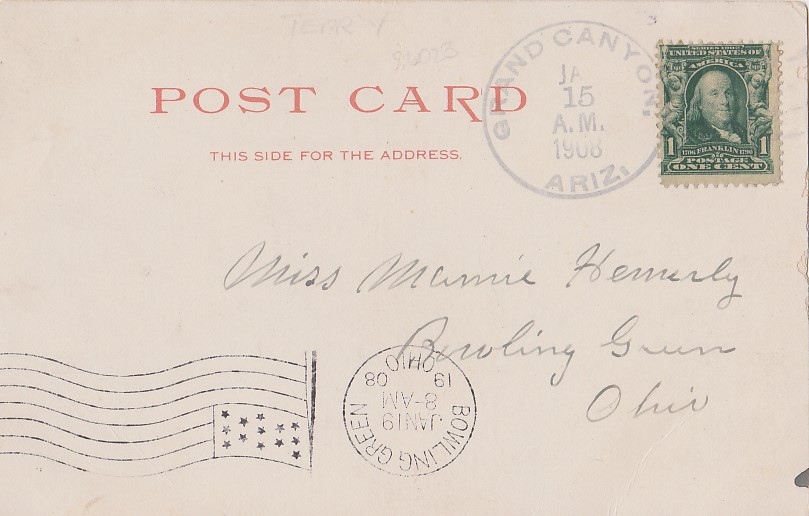 TERRY
GRAND CANYON,
JA
15
A.M.
1908
ARIZ.
SERIES 1902
UNITED STATES OF
AMERICA
1706 FRANKLIN 1790
1 POSTAGE 1
ONE CENT
POST CARD
THIS SIDE FOR THE ADDRESS.
Miss Mamie Hemerly
Bowling Green
Ohio
BOWLING GREEN
JAN 19
8-AM
19 08
OHIO